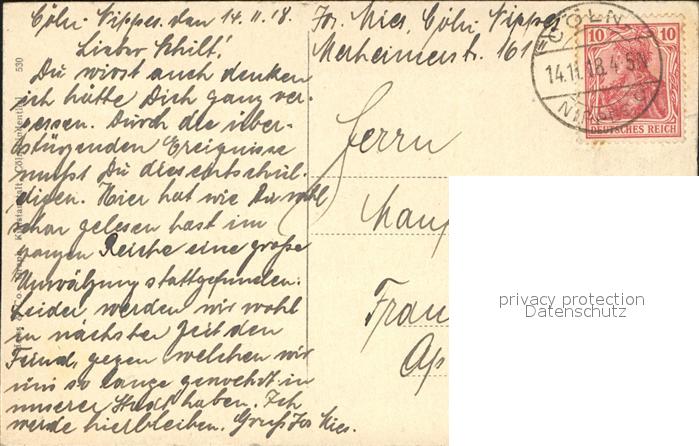 Cöln-Nippes, den 14.11.18.
Lieber Schilt!
Du wirst auch denken
ich hätte Dich ganz ver-
gessen. Durch die über-
stürzenden Ereignisse
mußt Du dies entschul-
digen. Hier hat wie Du wohl
schon gelesen hast im
ganzen Reiche eine große
Umwälzung stattgefunden.
Leider werden wir wohl
in nächster Zeit den
Feind, gegen welchen wir
uns so lange gewehrt in
unserer Stadt haben. Ich
werde hierbleiben. Gruß Jos Kies.
Jos. Kies, Cöln-Nippes
Merheimerstr. 161
Herrn
Frau
Ap
530
CÖLN
14.11.18.4-5N
NIPPES
10 10
DEUTSCHES REICH
privacy protection
Datenschutz